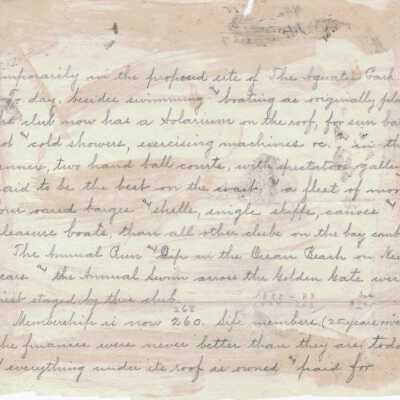 temporarily in the proposed site of The Aquatic Park
To day, besides swimming & boating as originally plan
the club now has a Solarium on the roof, for sun bat
d "cold showers, exercising machines &c. & in the
nnex, two hand ball courts, with spectators galler
said to be the best on the coast, & a fleet of mor
our oared barges & shells, single skiffs, canoes &
pleasure boats than all other clubs on the bay comb
The Annual Run & Dip in the Ocean Beach on New
ears & the Annual Swim across the Golden Gate, were
irst staged by this club.
268
Membership is now 260. Life members (25 years or
he finances were never better than they are today
d everything under its roof is owned & paid for